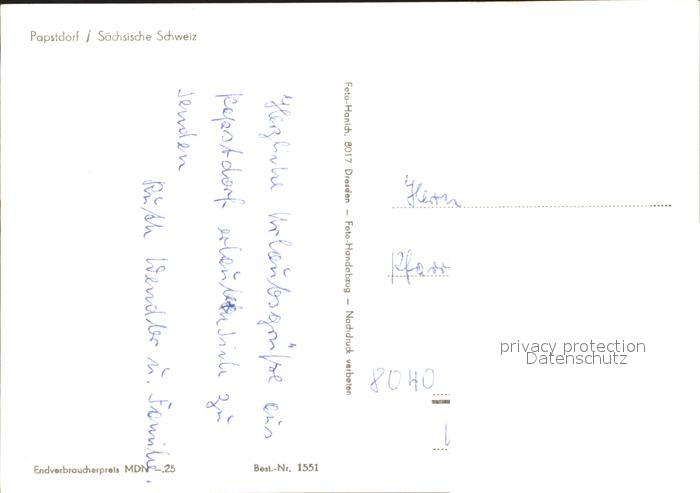 Papstdorf / Sächsische Schweiz
Herzliche Urlaubsgrüße aus
Papstdorf erlauben sich zu
senden
Ruth Wendler u. Familie.
Foto-Hanich, 8017 Dresden — Foto-Handabzug — Nachdruck verboten
Herrn
Pfarr
8040
privacy protection
Datenschutz
Endverbraucherpreis MDN —.25
Best.-Nr. 1551